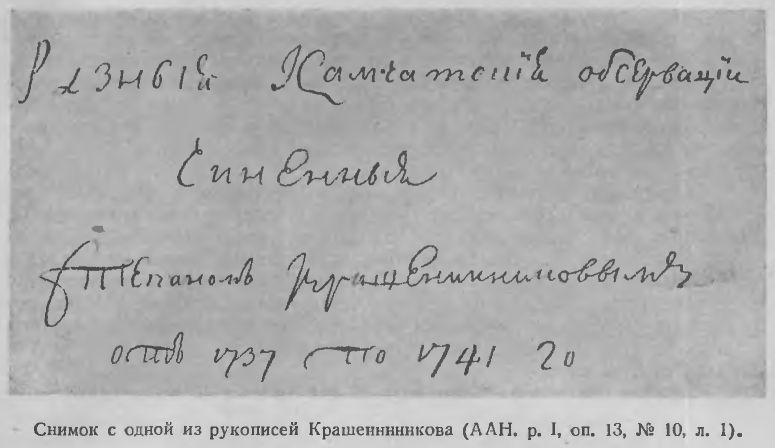 Разныѣ Камчатскїѣ обсервацїи
Чиненныя
Степаномъ Крашенинниковымъ
отъ 1737 по 1741 го
Снимок с одной из рукописей Крашенинникова (ААН. р. I, оп. 13, № 10, л. 1).